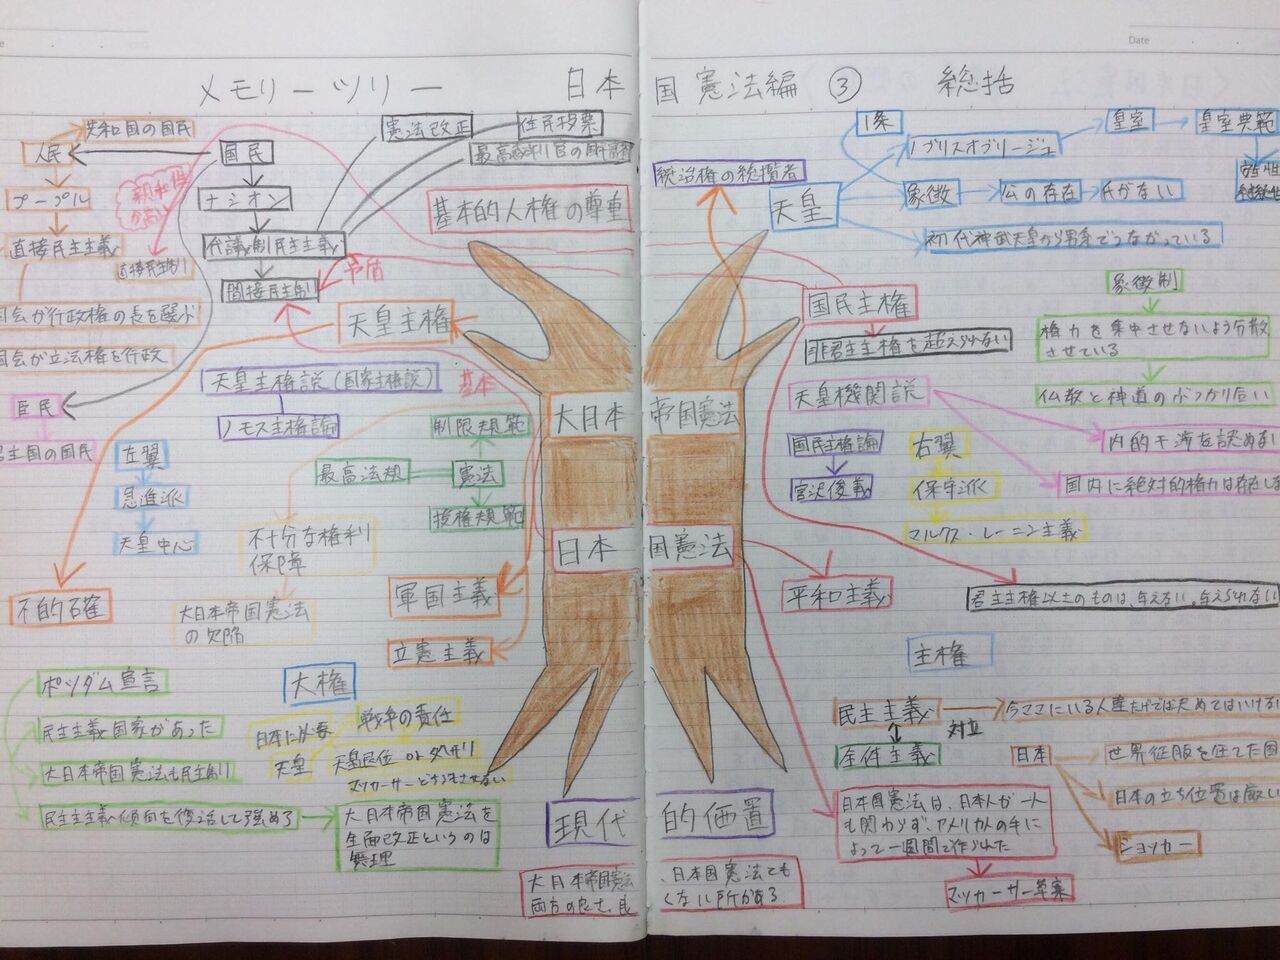 メモリーツリー 日本国憲法編 ③ 総括
Date
共和国の国民
人民
国民
憲法改正
住民投票
親和性
が高い
プープル
ナシオン
基本的人権の尊重
直接民主主義
直接民主制
代議制民主主義
矛盾
間接民主制
国会が行政権の長を選ぶ
国会が立法権を行政
天皇主権
天皇主権説(国家主権説)
基本
ノモス主権論
制限規範
最高法規
憲法
授権規範
臣民
君主国の国民
左翼
急進派
天皇中心
不十分な権利
保障
大日本帝国憲法
の欠陥
不的確
軍国主義
立憲主義
大日本帝国憲法
日本国憲法
統治権の総攬者
天皇
1条
ノブリスオブリージュ
皇室
皇室典範
象徴
公の存在
氏がない
初代神武天皇から男系でつながっている
国民主権
非君主主権を超えられない
象徴制
権力を集中させないよう分散
させている
仏教と神道のぶつかり合い
天皇機関説
内的干渉を認めない
国内に絶対的権力は存在しま
国民主権論
宮沢俊義
右翼
保守派
マルクス・レーニン主義
平和主義
君主主権以上のものは、与えない。与えられない
主権
ポツダム宣言
民主主義国家があった
大日本帝国憲法も民主的
民主主義傾向を復活して強めろ
大日本帝国憲法を
全面改正というのは
無理
大権
日本に必要
天皇
戦争の責任
天皇退位 or ダメサリ
マッカーサーどちらもさせない
民主主義
今ココにいる人達だけでは決めてはいけない
対立
全体主義
日本
世界征服を企てた国
日本の立ち位置は厳しい
ショッカー
現代的価置
日本国憲法は、日本人が一人
も関わらず、アメリカ人の手に
よって一週間で作られた
マッカーサー草案
大日本帝国憲法、日本国憲法とも
両方の良さ、良くない所がある